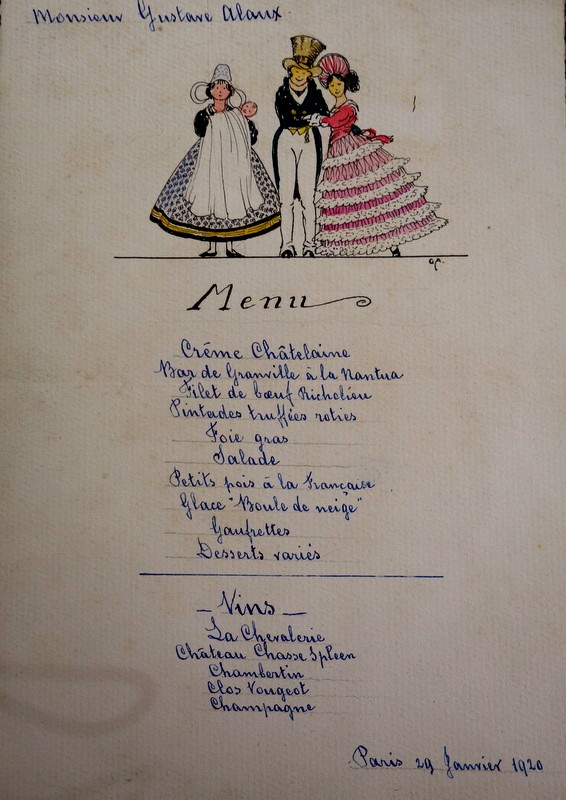 Monsieur Gustave Alaux
Menu
Créme Châtelaine
Bar de Granville à la Nantua
Filet de bœuf Richelieu
Pintades truffées roties
Foie gras
Salade
Petits pois à la Française
Glace "Boule de neige"
Gaufrettes
Desserts variés
— Vins —
La Chevalerie
Château Chasse Spleen
Chambertin
Clos Vougeot
Champagne
Paris 29 Janvier 1920